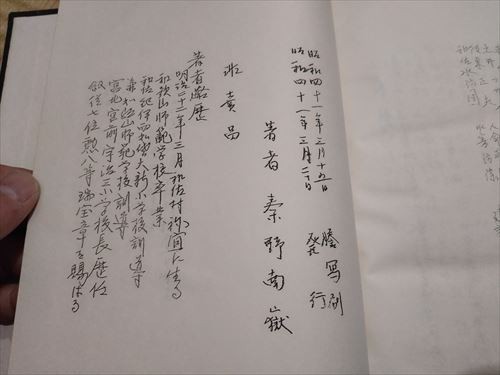 昭和四十一年三月十五日 謄写刷
昭和四十一年三月二十日 発行
著者 秦野南嶽
非売品
著者略歴
明治二十一年三月和佐村祢宜に生る
和歌山師範学校卒業
和佐紀伊西和佐大新小学校訓導
兼和歌山師範学校訓導
宮北宮前宇治三小学校長歴任
叙従七位勲八等瑞宝章を賜はる